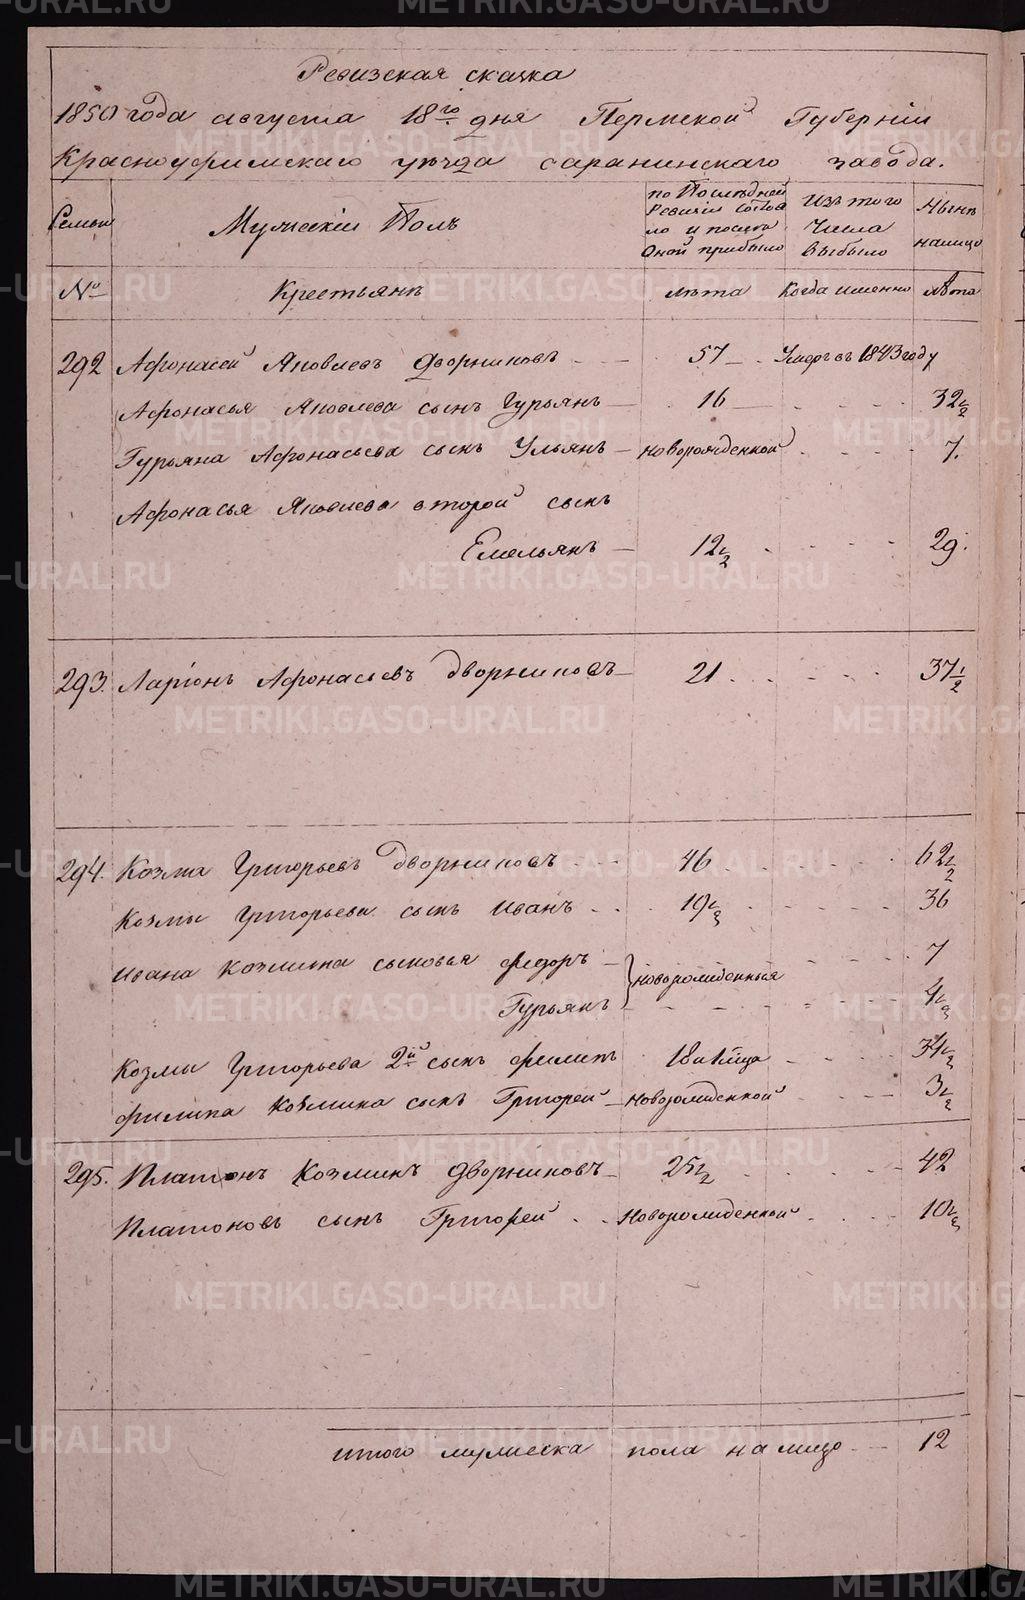 Ревизская сказка
1850 года августа 18го дня Пермской Губернiи
Красноуфимскаго уѣзда саранинскаго завода.
Семьи
Мужескiй Полъ
по Послѣдней Ревизiи состояло и после Оной прибыло
Изъ того Числа выбыло
Нынѣ налицо
№
Крестьянѣ
лѣта
Когда именно
лѣта
292 Афонасей Яковлевъ Дворниковъ 57 Умеръ въ 1843 году
Афонасья Яковлева сынъ Гурьянъ 16 32 1/2
Гурьяна Афонасьева сынъ Ульянъ Новорожденной 7.
Афонасья Яковлева второй сынъ
Емельянъ 12 1/2 29.
293. Ларiонъ Афонасьевъ Дворниковъ 21 37 1/2
294. Козма Григорьевъ Дворниковъ 46 62 1/2
Козмы Григорьева сынъ Иванъ 19 1/2 36
Ивана Козмина сыновья Федоръ Новорожденныя 7
Гурьянъ 4 1/2
Козмы Григорьева 2й сынъ Филипъ 18 и 1 м͞ца 34 1/2
Филипа Козмина сынъ Григорей Новорожденной 3 1/2
295. Платонъ Козминъ Дворниковъ 25 1/2 42
Платоновъ сынъ Григорей Новорожденной 10 1/2
итого мужеска пола на лицо 12
METRIKI.GASO-URAL.RU